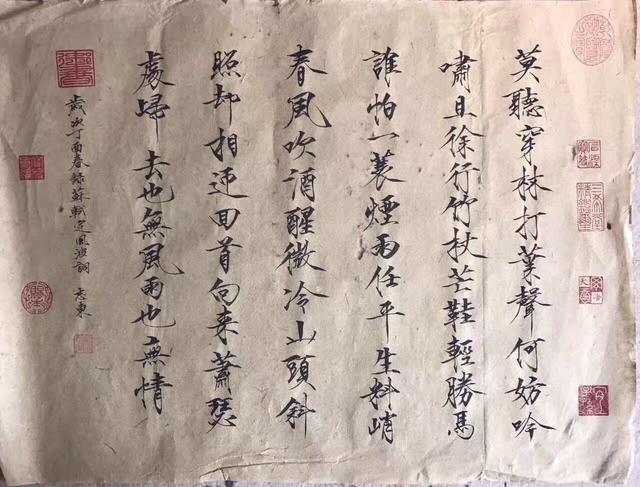 莫聽穿林打葉聲何妨吟
嘯且徐行竹杖芒鞋輕勝馬
誰怕一蓑煙雨任平生料峭
春風吹酒醒微冷山頭斜
照却相迎回首向来蕭瑟
處歸去也無風雨也無情
歲次丁酉春録蘇軾定風波詞 志東
三希堂精鑑璽
宜子孫